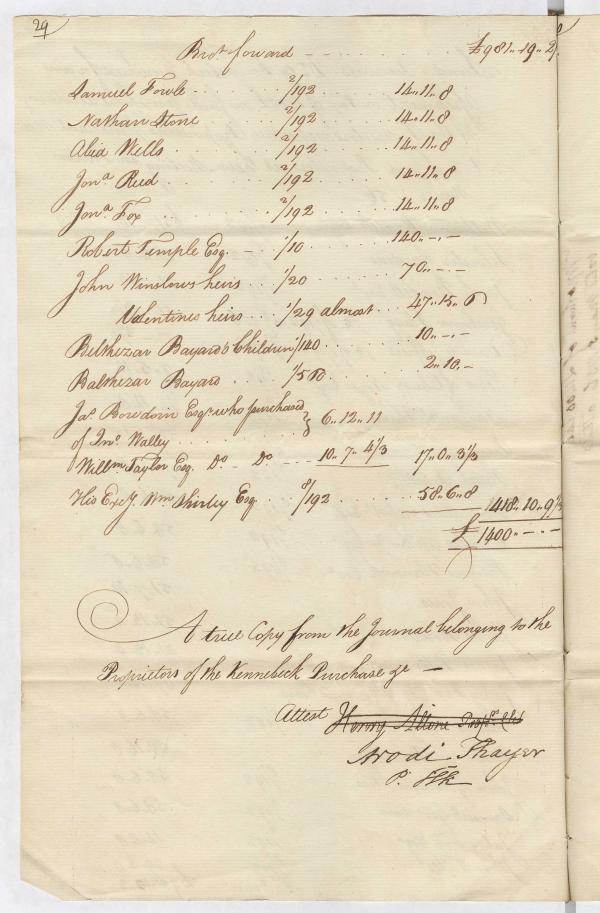 29
Brot. forward - - - - £981..19..2
Samuel Fowle . . . 2/192 . . . 14..11..8
Nathan Stone . . . 2/192 . . . 14..11..8
Abia Wells . . . 2/192 . . . 14..11..8
Jona. Reed . . . 2/192 . . . 14..11..8
Jona. Fox . . . 2/192 . . . 14..11..8
Robert Temple Esq. - . 1/10 . . . 140..-..-
John Winslows heirs . . 1/20 . . . 70..-..-
Valentines heirs . . . 1/29 almost . . . 47..15..6
Belthezar Bayard's Children 1/140 . . . 10..-..-
Balthezar Bayard . . . 1/560 . . . 2..10..-
Jas. Bowdoin Esqr. who purchased } 6..12..11
of Jno. Walley . . . .
Willm Taylor Esq. Do. - Do. - - - 10..7..4 1/3 17..0..3 1/3
His Excy. Wm. Shirley Esq . . 8/192 . . . 58..6..8 1418..10..9 1/3
£ 1400..-..-
A true Copy from the Journal belonging to the
Proprietors of the Kennebeck Purchase &c —
Attest Henry Alline Propr. Clk
Arodi Thayer
P. Clk